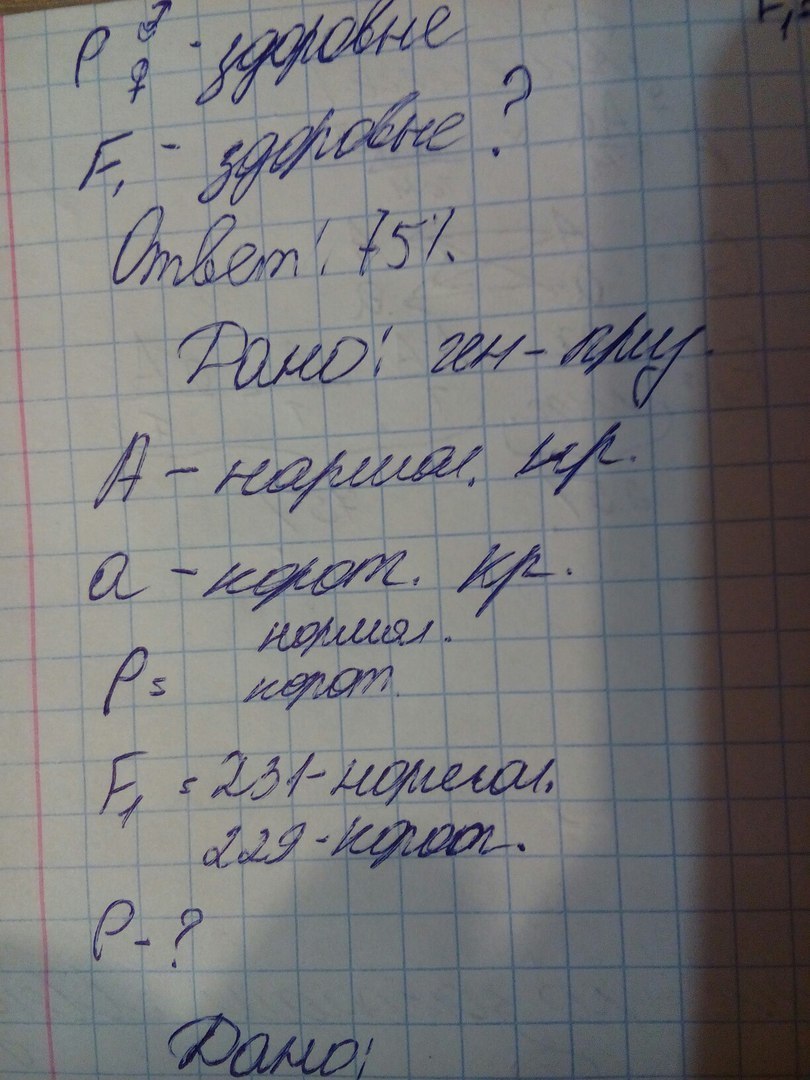 P ♂ - здоровые
♀
F₁ - здоровые ?
Ответ: 75%.
Дано: ген-
A - нармал. кр.
a - корот. кр.
нормал.
P = корот.
F₁ = 231-нормал.
229-корот.
P - ?
Дано: